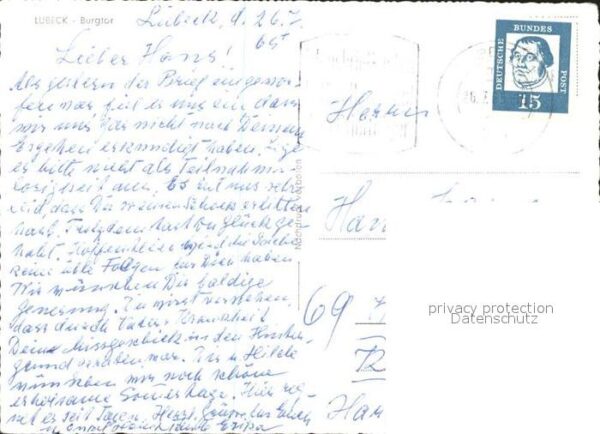 LÜBECK - Burgtor
Lübeck, d. 26.7.
65
Lieber Hans!
Als gestern der Brief eingewor-
fen war fiel es uns ein dass
wir uns gar nicht nach Deinem
Ergehen erkundigt haben. Lege
es bitte nicht als Teilnahms-
losigkeit aus. Es tut uns sehr
leid, dass Du so einen Schock erlitten
hast. Trotzdem hast Du Glück ge-
habt. Hoffentlich die
keine üble Folgen für Dich haben
Wir wünschen Dir baldige
Genesung. Du wirst verstehen,
dass durch Vaters Krankheit
Dein Missgeschick in den Hinter-
grund geraten war. Dir u Hilde
wünschen wir noch schöne
erholsame Sommertage. Hier reg-
net es seit Tagen. Herzl. Grüsse
Nachdruck verboten
DEUTSCHE
BUNDES
POST
15
Herrn
Han
69
72
Ham
privacy protection
Datenschutz